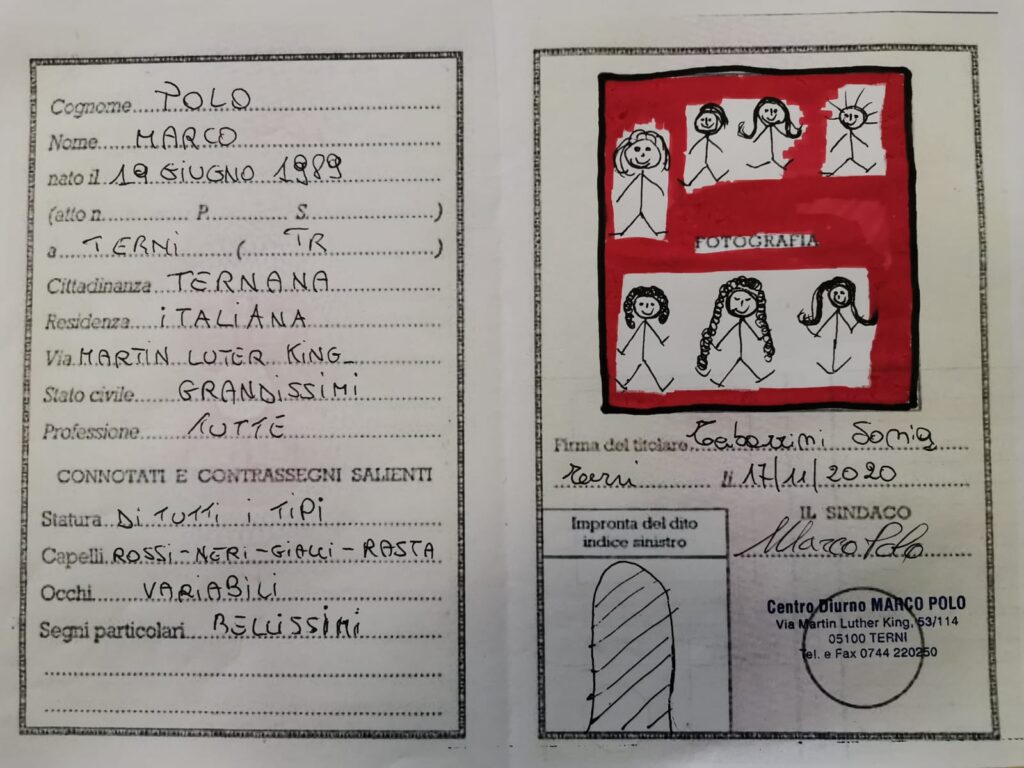 Cognome POLO
Nome MARCO
nato il 19 GIUGNO 1989
(atto n. P. S. )
a TERNI ( TR )
Cittadinanza TERNANA
Residenza ITALIANA
Via MARTIN LUTER KING
Stato civile GRANDISSIMI
Professione TUTTE
CONNOTATI E CONTRASSEGNI SALIENTI
Statura DI TUTTI I TIPI
Capelli ROSSI-NERI-GIALLI-RASTA
Occhi VARIABILI
Segni particolari BELLISSIMI
FOTOGRAFIA
Firma del titolare Tabarrini Sonia
Terni li 17/11/2020
Impronta del dito
indice sinistro
IL SINDACO
Marco Polo
Centro Diurno MARCO POLO
Via Martin Luther King, 53/114
05100 TERNI
Tel. e Fax 0744 220250